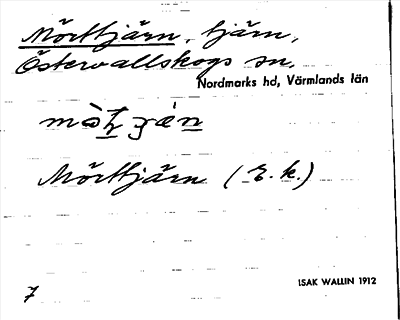 Mörttjärn, tjärn,
Östervallskogs sn.
Nordmarks hd, Värmlands län
Mörttjärn (r. k.)
ISAK WALLIN 1912
7